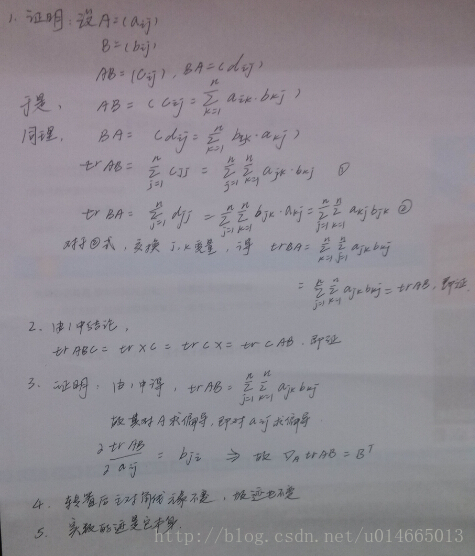 1. 证明：设A=(aij)
B=(bij)
AB=(Cij), BA=(dij)
于是, AB=(Cij=∑_{k=1}^{n} aik·bkj)
同理, BA=(dij=∑_{k=1}^{n} bik·akj)
trAB=∑_{j=1}^{n} Cjj=∑_{j=1}^{n}∑_{k=1}^{n} ajk·bkj ①
trBA=∑_{j=1}^{n} djj=∑_{j=1}^{n}∑_{k=1}^{n} bjk·akj=∑_{j=1}^{n}∑_{k=1}^{n} akj bjk ②
对于②式, 交换j,k变量, 得 trBA=∑_{k=1}^{n}∑_{j=1}^{n} ajk bkj
=∑_{j=1}^{n}∑_{k=1}^{n} ajk bkj=trAB, 即证
2. 由1中结论,
trABC=trXC=trCX=trCAB, 即证
3. 证明：由1中得, trAB=∑_{j=1}^{n}∑_{k=1}^{n} ajk bkj
故其对A求偏导, 即对aij求偏导
∂trAB/∂aij=bji ⇒ 故 ∇A trAB=B^T
4. 转置后主对角线元素不变, 故迹也不变
5. 实数的迹是它本身.
http://blog.csdn.net/u014665013